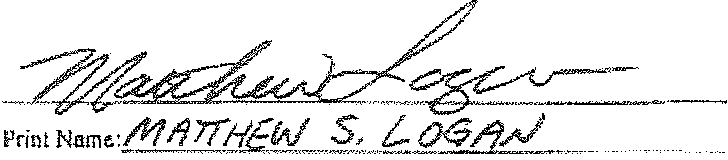 Matthew Logan
Print Name: MATTHEW S. LOGAN